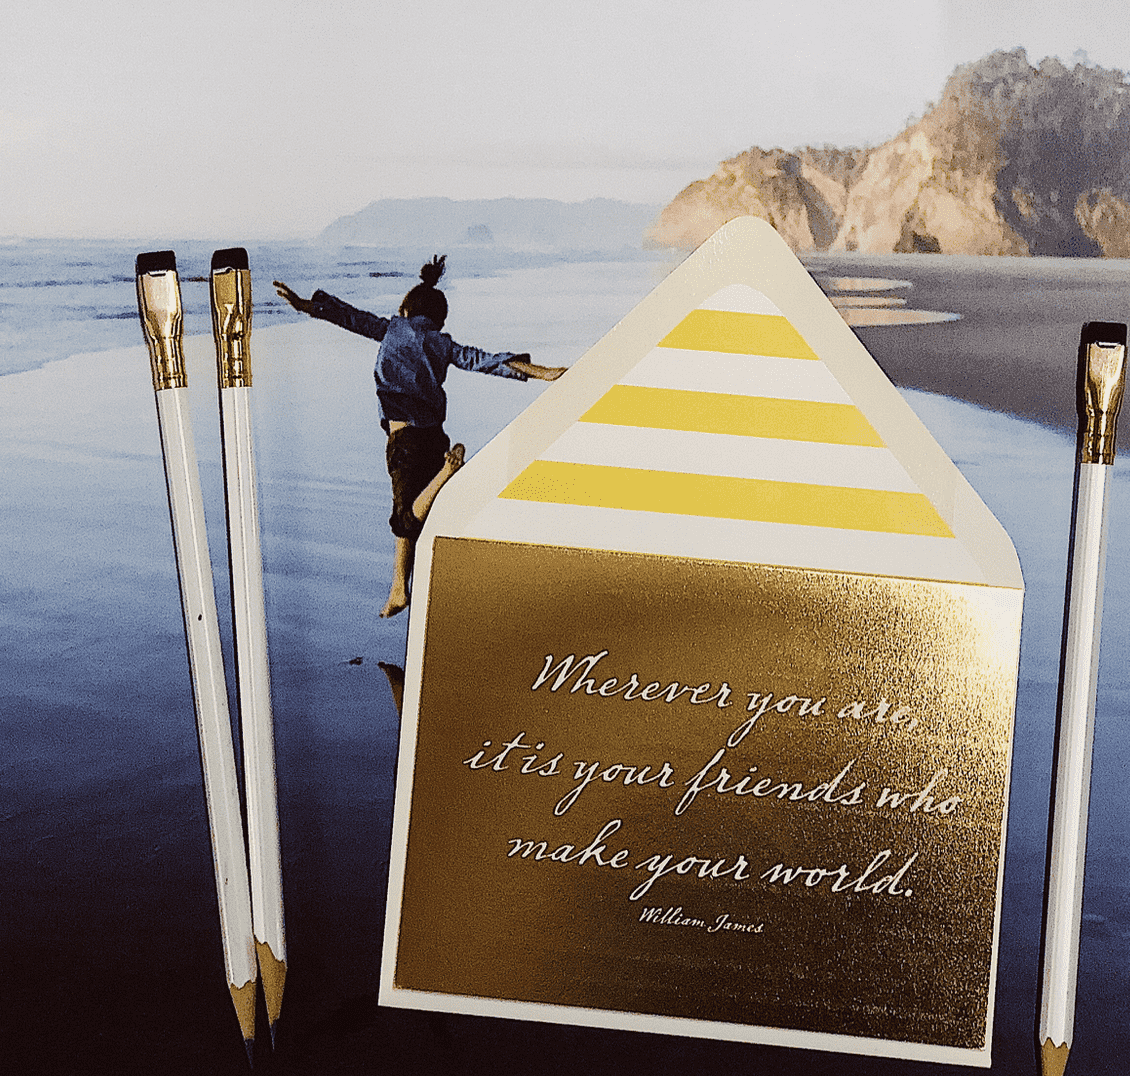 Wherever you are,
it is your friends who
make your world.
William James